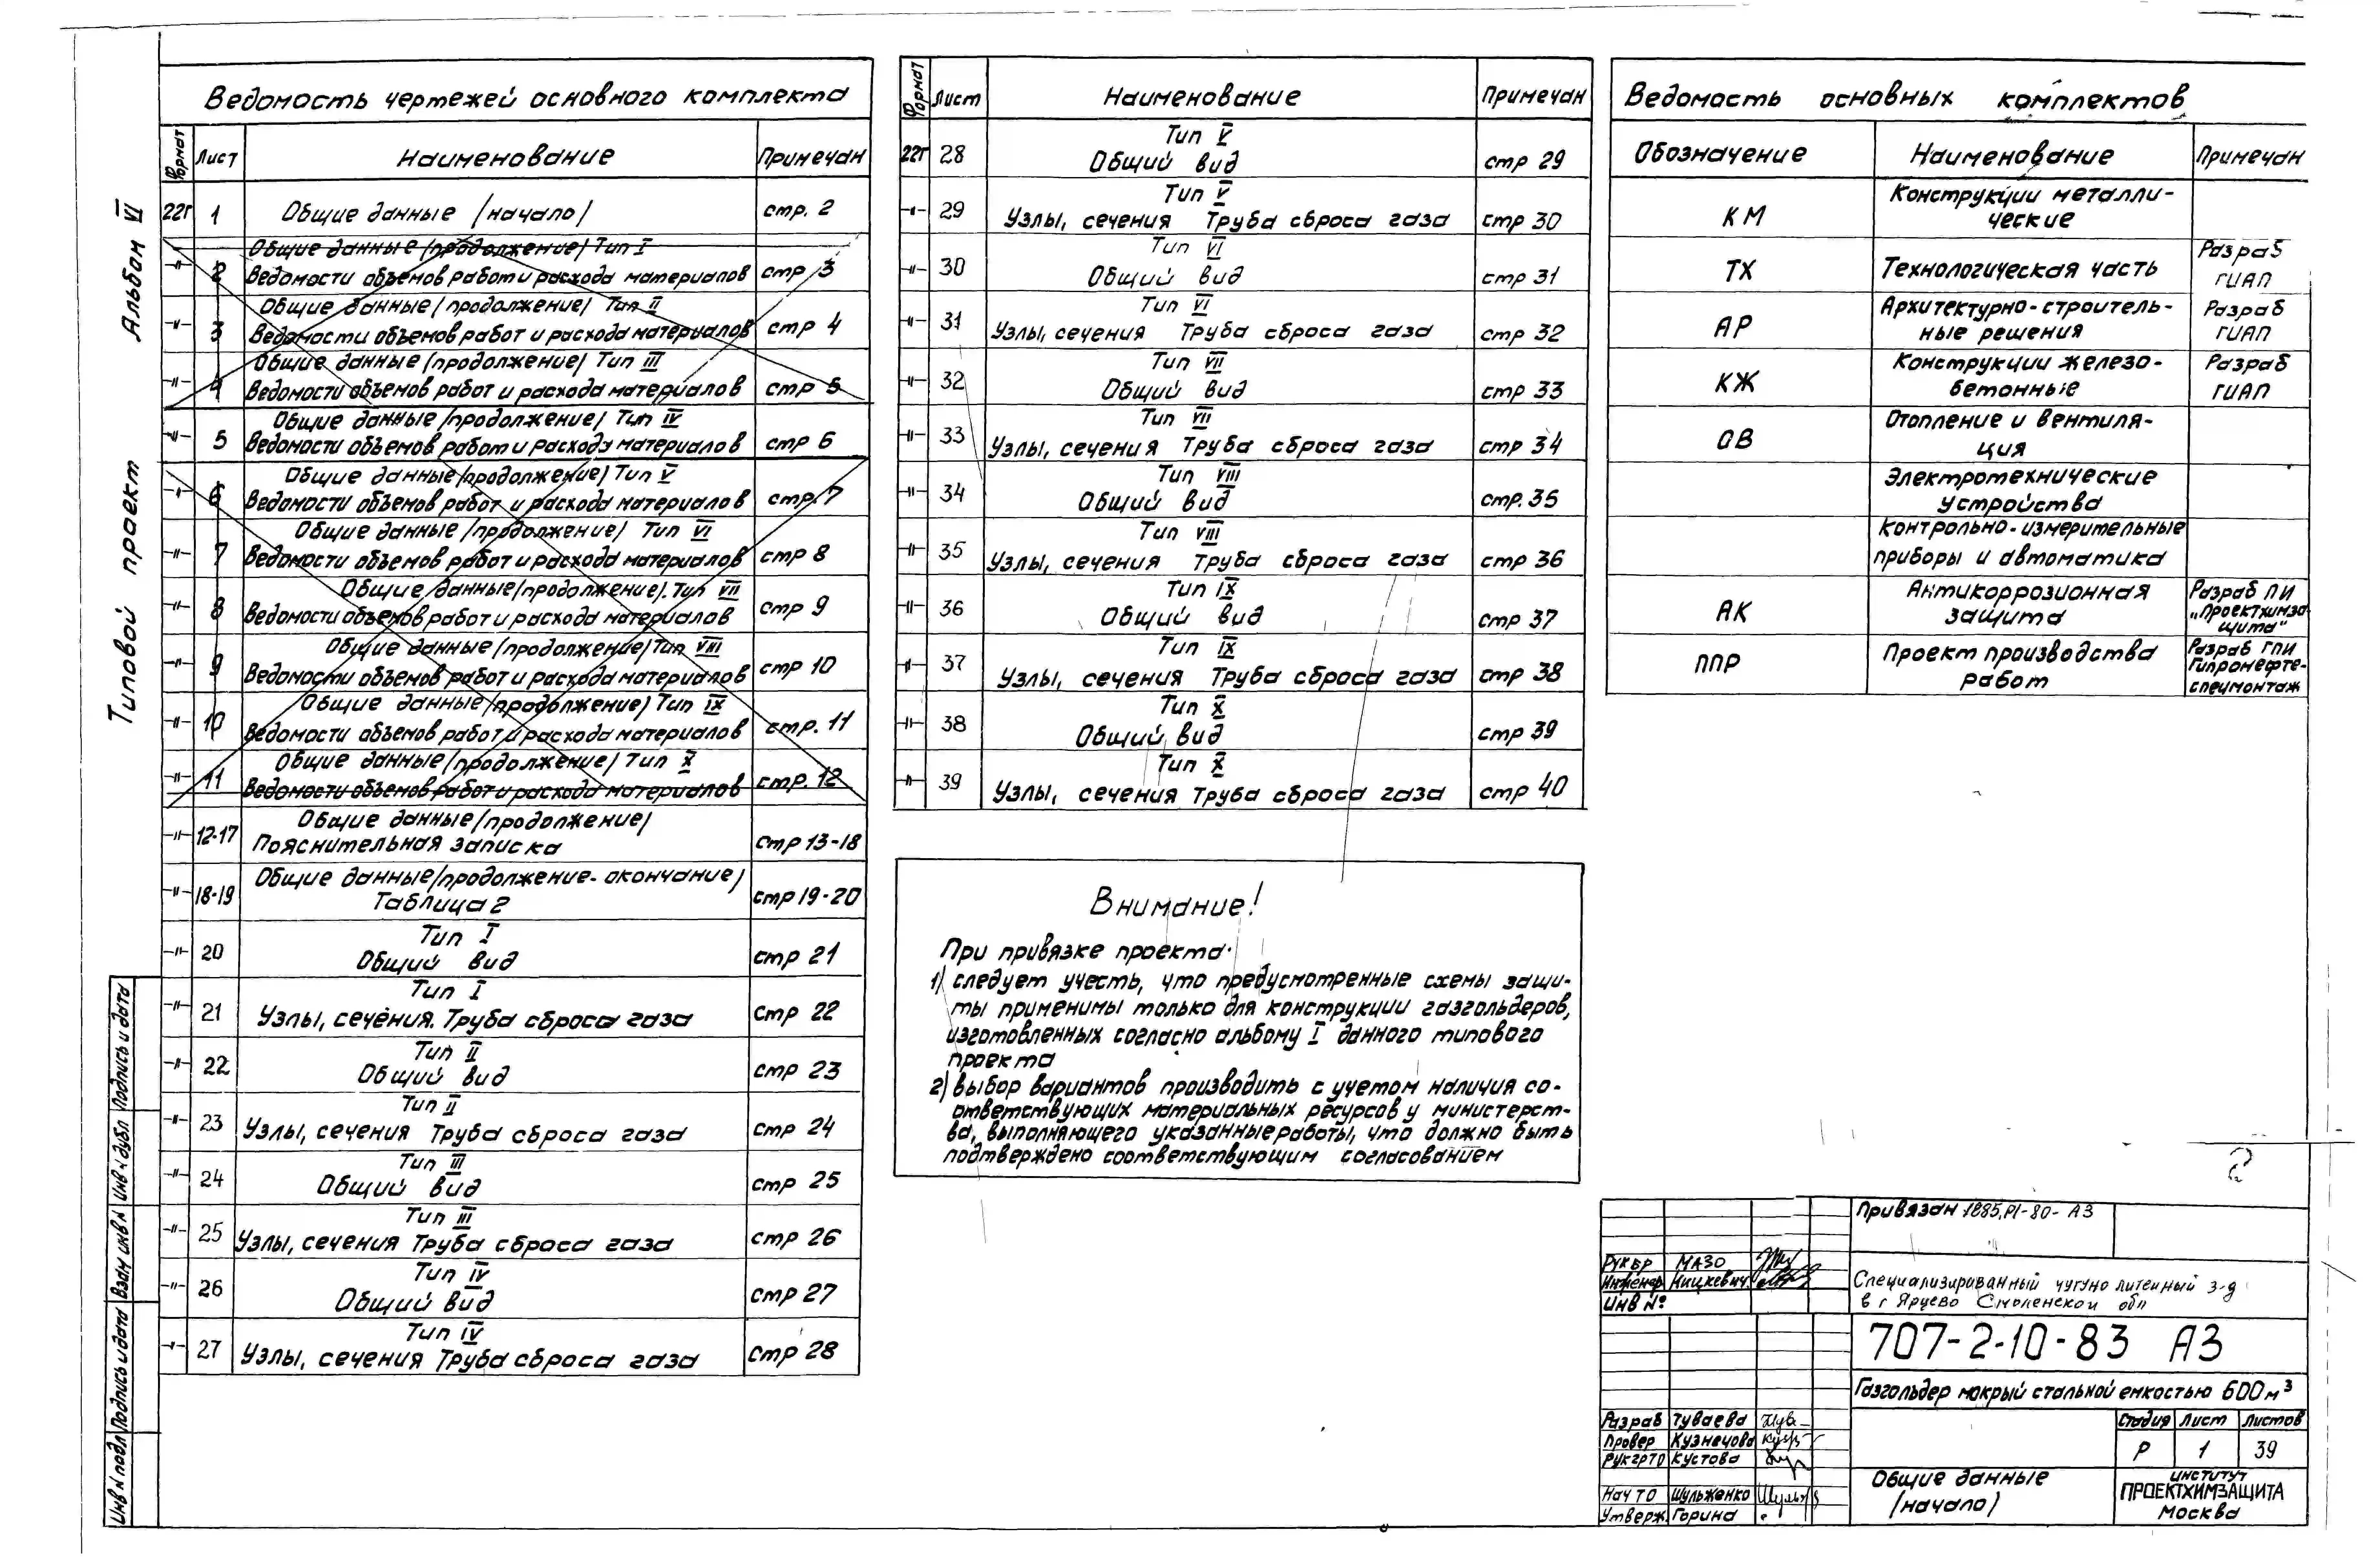 Альбом VI
Типовой проект
Ведомость чертежей основного комплекта
Формат Лист Наименование Примечан
22г 1 Общие данные /начало/ стр. 2
Общие данные /продолжение/ Тип I
-"- 2 Ведомости объемов работ и расхода материалов стр 3
Общие данные /продолжение/ Тип II
-"- 3 Ведомости объемов работ и расхода материалов стр 4
Общие данные /продолжение/ Тип III
-"- 4 Ведомости объемов работ и расхода материалов стр 5
Общие данные /продолжение/ Тип IV
-"- 5 Ведомости объемов работ и расхода материалов стр 6
Общие данные /продолжение/ Тип V
-"- 6 Ведомости объемов работ и расхода материалов стр. 7
Общие данные /продолжение/ Тип VI
-"- 7 Ведомости объемов работ и расхода материалов стр 8
Общие данные /продолжение/. Тип VII
-"- 8 Ведомости объемов работ и расхода материалов стр 9
Общие данные /продолжение/ Тип VIII
-"- 9 Ведомости объемов работ и расхода материалов стр 10
Общие данные /продолжение/ Тип IX
-"- 10 Ведомости объемов работ и расхода материалов стр. 11
Общие данные /продолжение/ Тип X
-"- 11 Ведомости объемов работ и расхода материалов стр. 12
Общие данные /продолжение/
-"- 12-17 Пояснительная записка стр 13-18
Общие данные /продолжение-окончание/
-"- 18-19 Таблица 2 стр 19-20
Тип I
-"- 20 Общий вид стр 21
Тип I
-"- 21 Узлы, сечения. Труба сброса газа стр 22
Тип II
-"- 22 Общий вид стр 23
Тип II
-"- 23 Узлы, сечения Труба сброса газа стр 24
Тип III
-"- 24 Общий вид стр 25
Тип III
-"- 25 Узлы, сечения Труба сброса газа стр 26
Тип IV
-"- 26 Общий вид стр 27
Тип IV
-"- 27 Узлы, сечения Труба сброса газа стр 28
Формат Лист Наименование Примечан
Тип V
22г 28 Общий вид стр 29
Тип V
-"- 29 Узлы, сечения Труба сброса газа стр 30
Тип VI
-"- 30 Общий вид стр 31
Тип VI
-"- 31 Узлы, сечения Труба сброса газа стр 32
Тип VII
-"- 32 Общий вид стр 33
Тип VII
-"- 33 Узлы, сечения Труба сброса газа стр 34
Тип VIII
-"- 34 Общий вид стр. 35
Тип VIII
-"- 35 Узлы, сечения Труба сброса газа стр 36
Тип IX
-"- 36 Общий вид стр 37
Тип IX
-"- 37 Узлы, сечения Труба сброса газа стр 38
Тип X
-"- 38 Общий вид стр 39
Тип X
-"- 39 Узлы, сечения Труба сброса газа стр 40
Внимание!
При привязке проекта:
1) следует учесть, что предусмотренные схемы защи-
ты применимы только для конструкции газгольдеров,
изготовленных согласно альбому I данного типового
проекта
2) выбор вариантов производить с учетом наличия со-
ответствующих материальных ресурсов у министерст-
ва, выполняющего указанные работы, что должно быть
подтверждено соответствующим согласованием
Ведомость основных комплектов
Обозначение Наименование Примечан
Конструкции металли-
КМ ческие
ТХ Технологическая часть Разраб ГИАП
Архитектурно-строитель- Разраб
АР ные решения ГИАП
Конструкции железо- Разраб
КЖ бетонные ГИАП
Отопление и вентиля-
ОВ ция
Электротехнические
устройства
Контрольно-измерительные
приборы и автоматика
Антикоррозионная Разраб ПИ
АК защита „Проектхимза
щита"
Проект производства Разраб ГПИ
ППР работ Гипронефте-
спецмонтаж
Инв N подл Подпись и дата Взам инв N Инв N дубл Подпись и дата
Привязан 1885,Р1-80-АЗ
Рук бр Мазо
Инженер Ницкевич
Инв №
Специализированный чугунолитейный з-д
в г Ярцево Смоленской обл
707-2-10-83 АЗ
Газгольдер мокрый стальной емкостью 600м³
Стадия Лист Листов
Р 1 39
Разраб Туваева
Провер Кузнецова
Рук гр ТО Кустова
Нач ТО Шульженко
Утверж. Горина
Общие данные
/начало/
институт
ПРОЕКТХИМЗАЩИТА
Москва